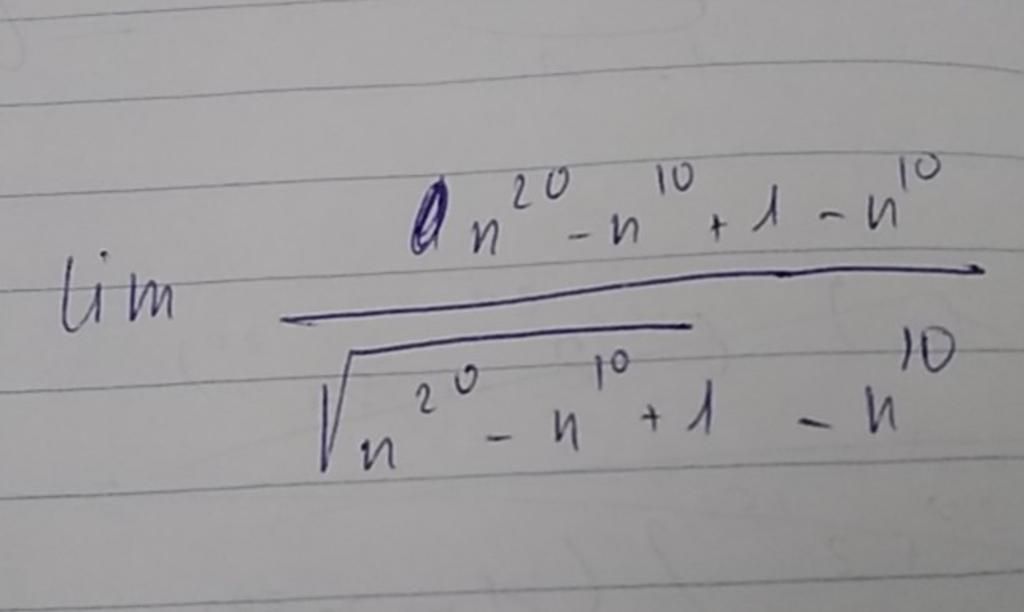 lim n²⁰ - n¹⁰ + 1 - n¹⁰
√(n²⁰ - n¹⁰ + 1) - n¹⁰